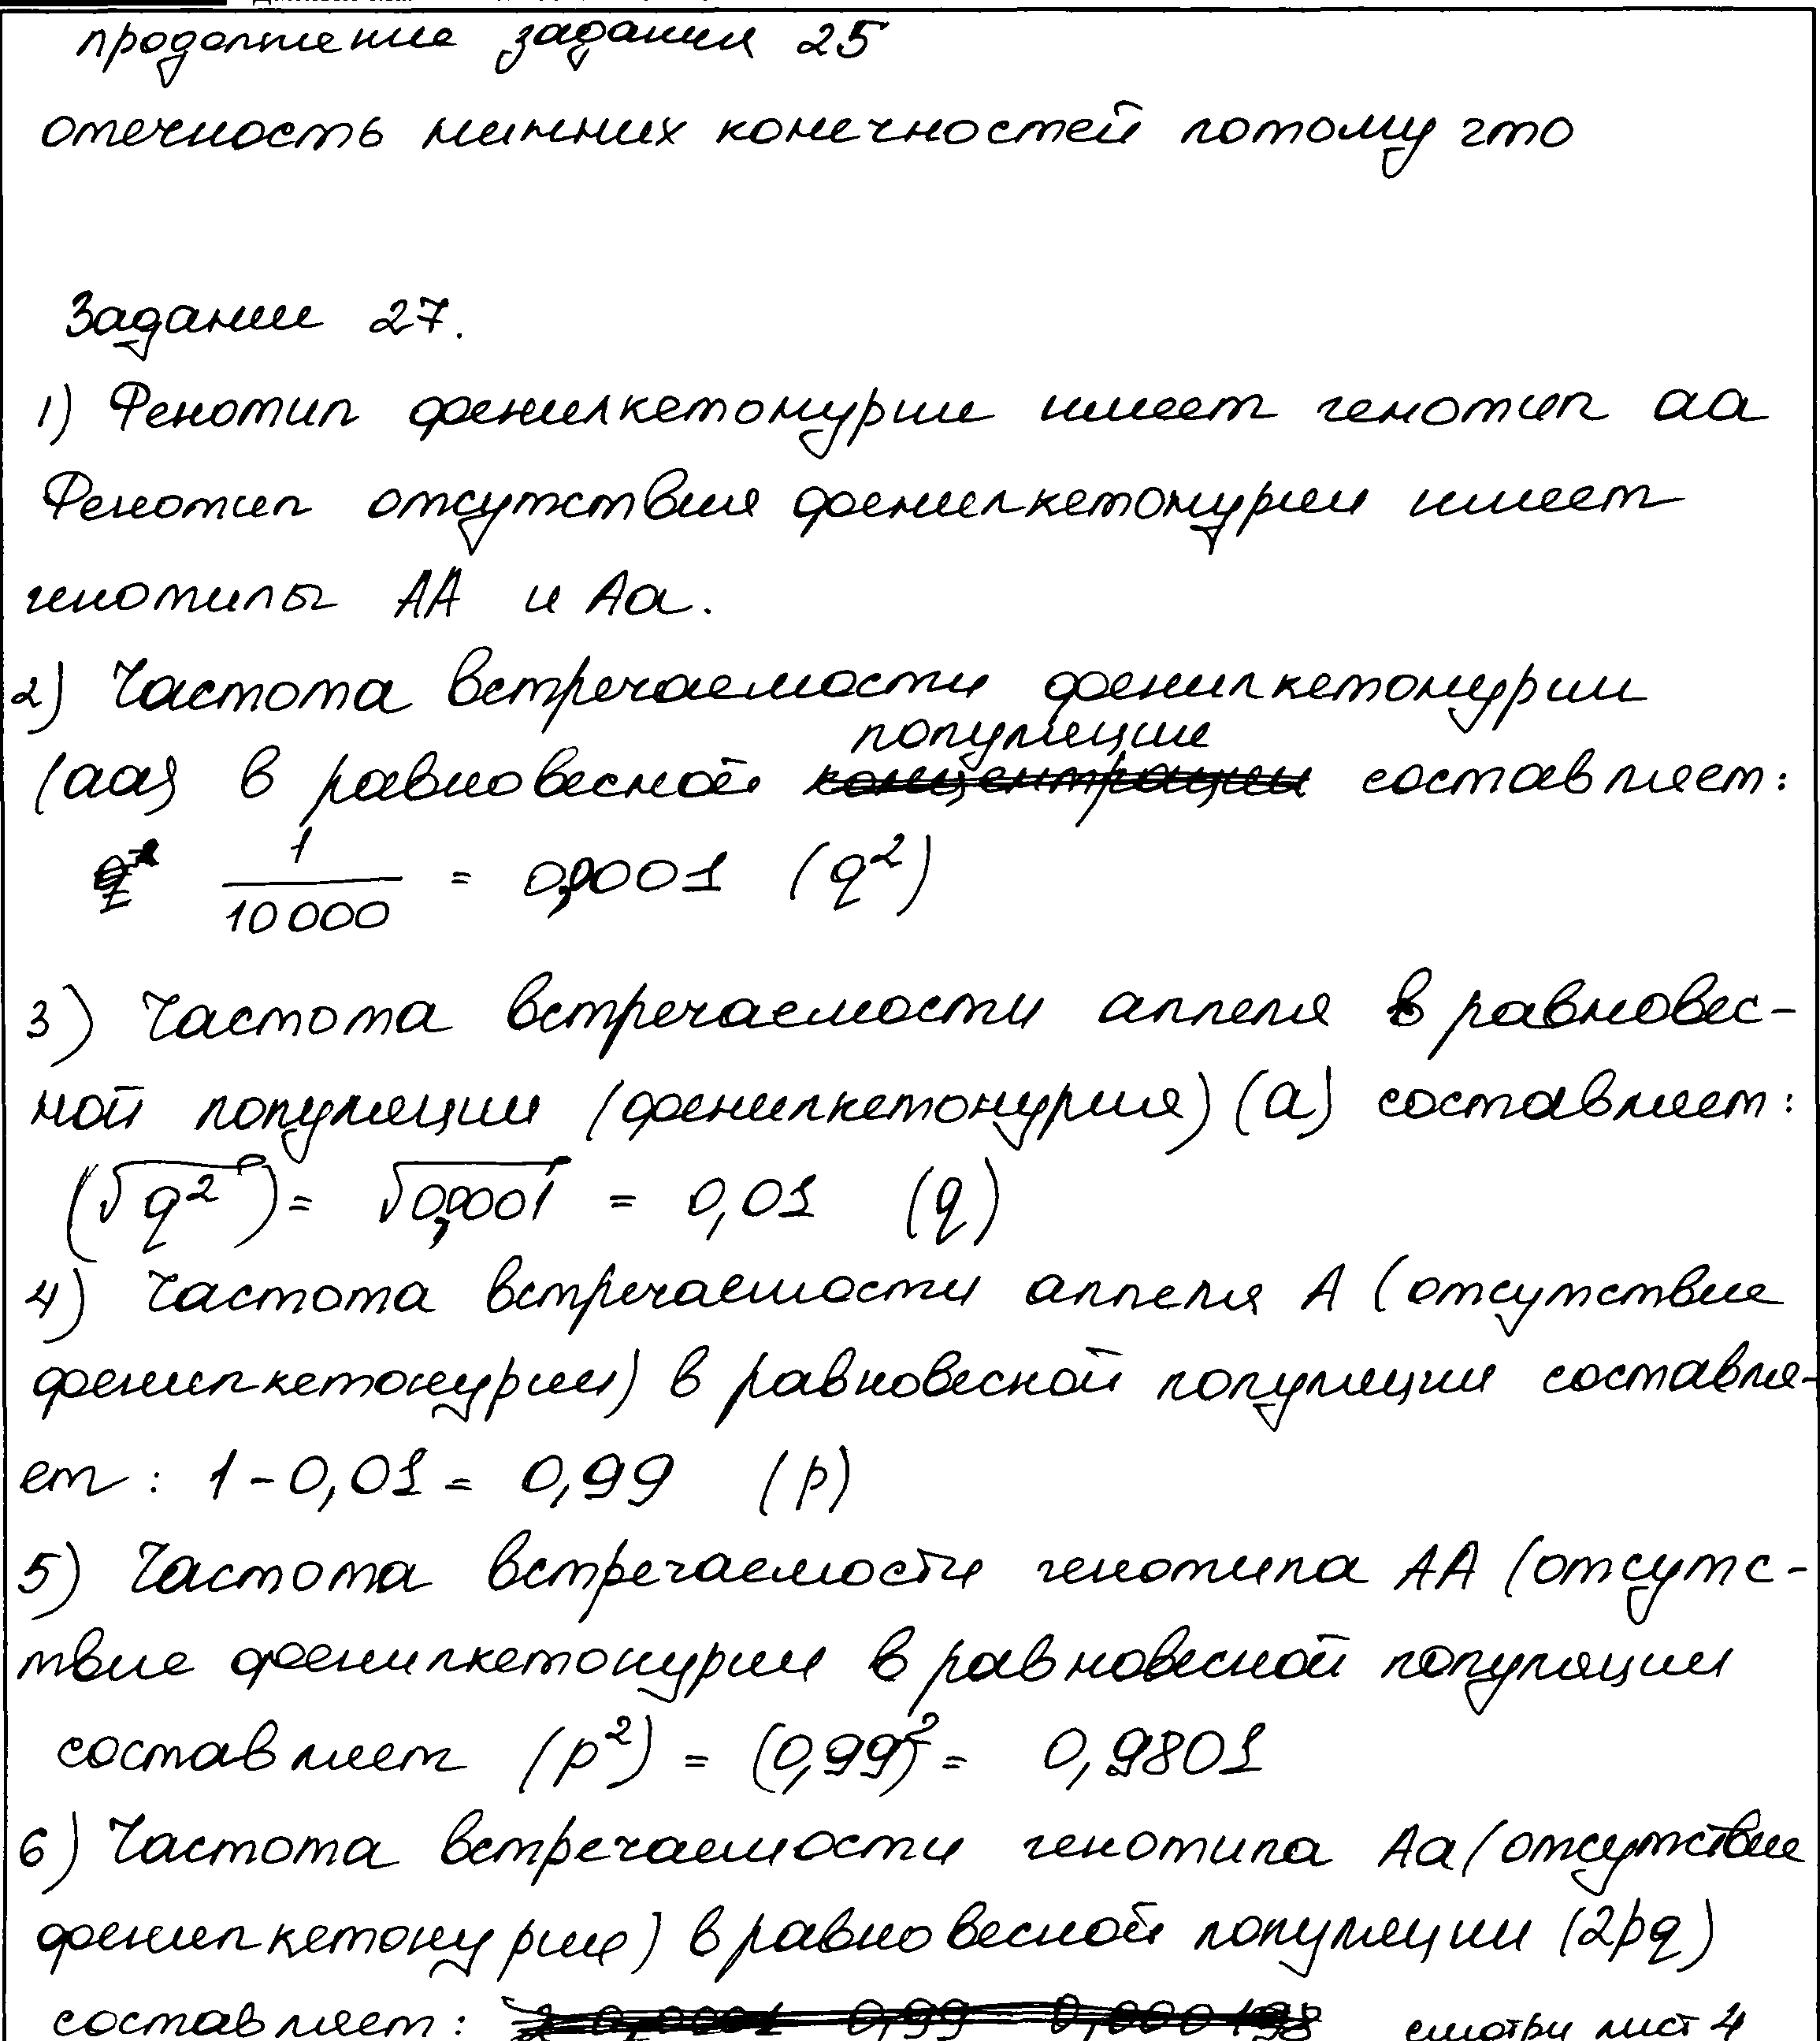 продолжение задания 25
отечность нижних конечностей потому что
Задании 27.
1) Фенотип фенилкетонурии имеет генотип аа
Фенотип отсутствия фенилкетонурии имеет
генотипы АА и Аа.
2) Частота встречаемости фенилкетонурии
популяции
(аа) в равновесной концентрации составляет:
1/10000 = 0,0001 (q²)
3) Частота встречаемости аллеля в равновес-
ной популяции (фенилкетонурия) (а) составляет:
(√q²) = √0,0001 = 0,01 (q)
4) Частота встречаемости аллеля А (отсутствие
фенилкетонурии) в равновесной популяции составля-
ет: 1 - 0,01 = 0,99 (p)
5) Частота встречаемости генотипа АА (отсутс-
твие фенилкетонурии в равновесной популяции
составляет (p²) = (0,99)² = 0,9801
6) Частота встречаемости генотипа Аа (отсутствие
фенилкетонурии) в равновесной популяции (2pq)
составляет: 2 0,0001 0,99 = 0,000198 смотри лист 4